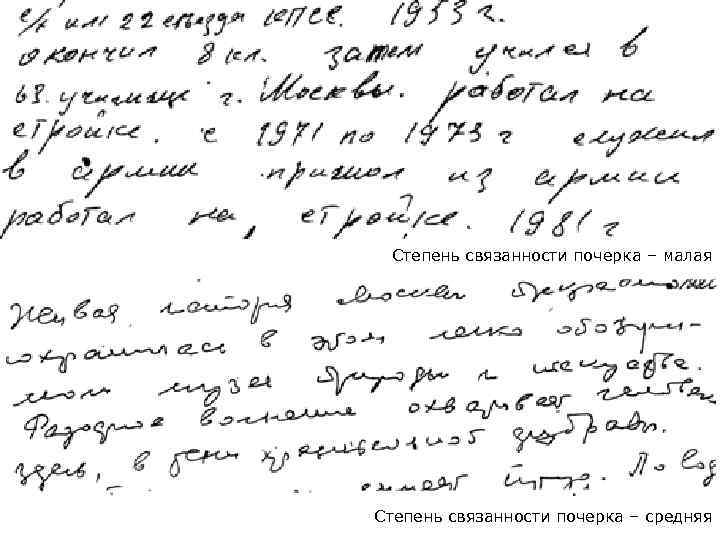 с/х им 22 съезда КПСС. 1953 г.
окончил 8 кл. затем учился в
63 училище г. Москвы. работал на
стройке. с 1971 по 1973 г служил
в армии пришол из армии
работал на, стройке. 1981 г
Степень связанности почерка – малая
Живая история Москвы
сохранилась в этом легко
музея природы и искусства.
Радостное волнение охватывает человека
здесь, в тени дубравы.
Степень связанности почерка – средняя